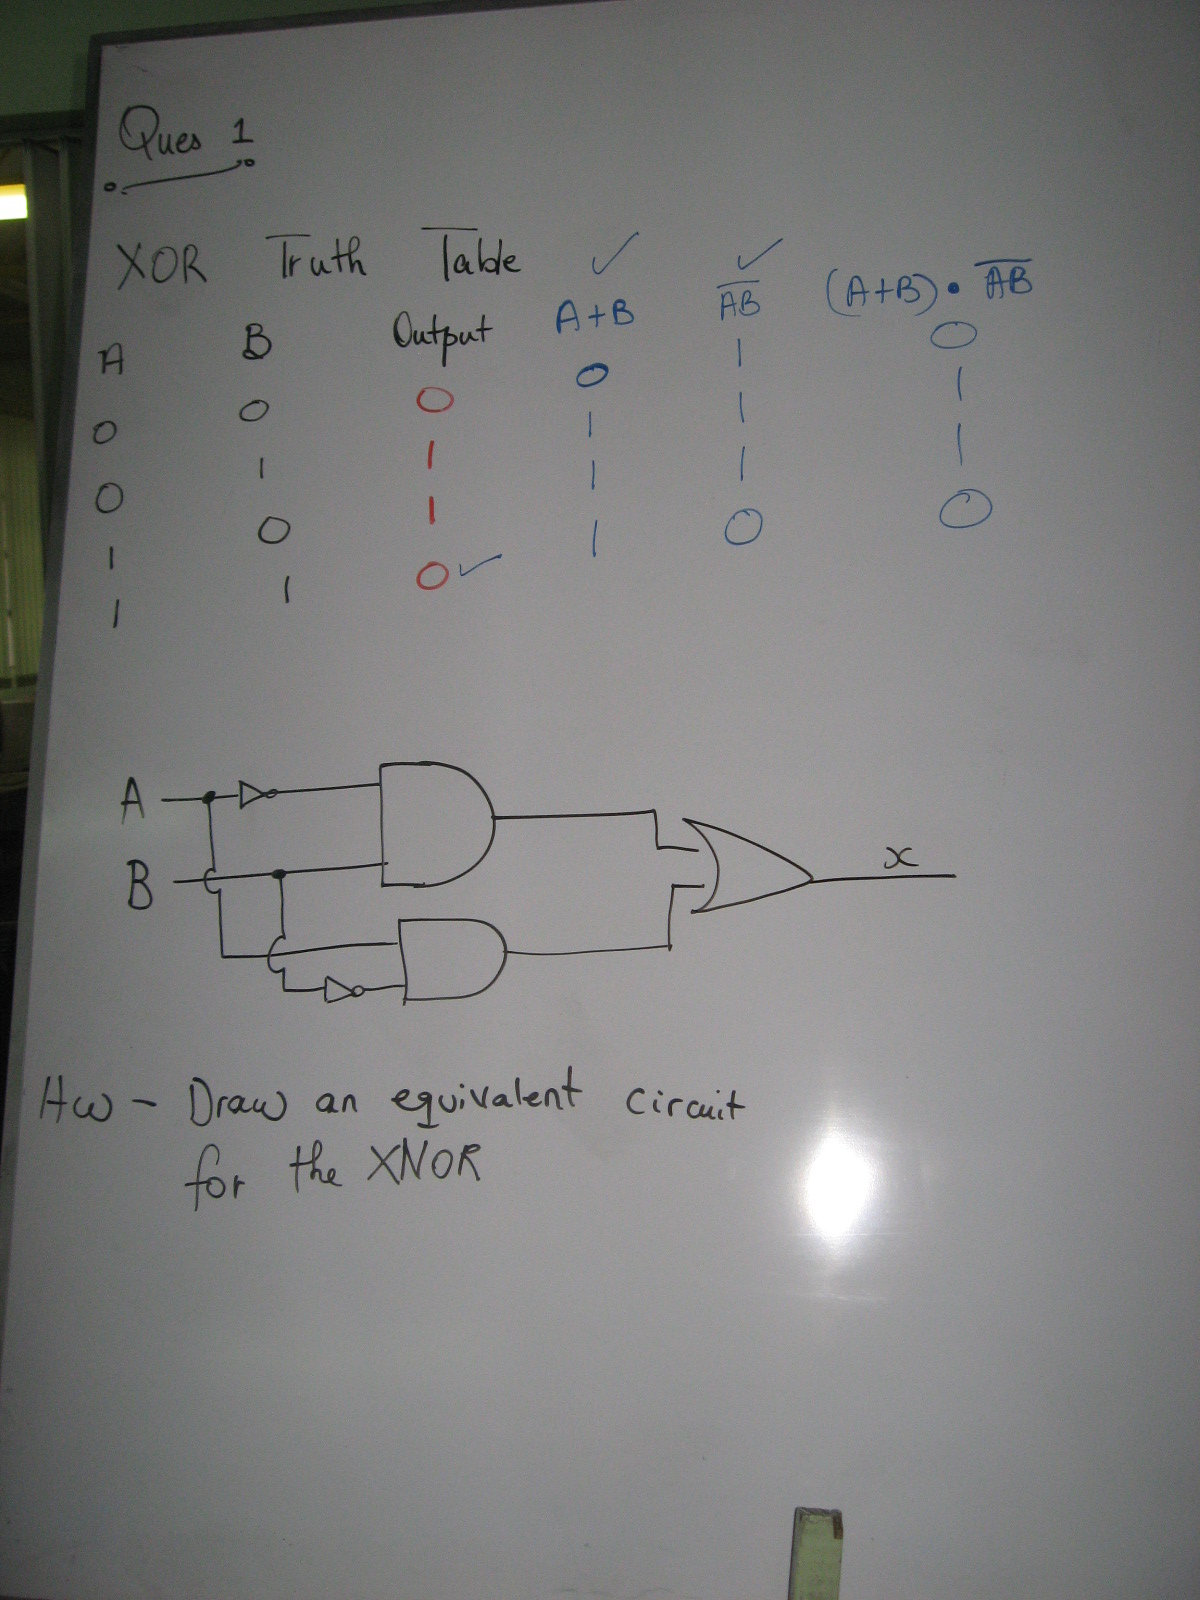 Ques 1
XOR Truth Table
A B Output A+B A̅B̅ (A+B)•A̅B̅
0 0 0 0 1 0
0 1 1 1 1 1
1 0 1 1 1 1
1 1 0 1 0 0
A
B
x
Hw - Draw an equivalent circuit
for the XNOR